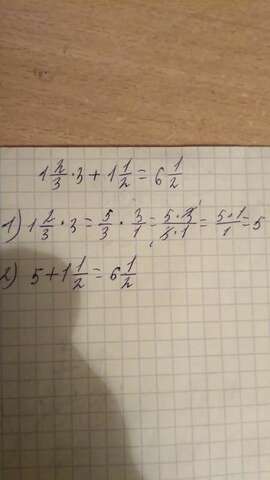 1 2/3 · 3 + 1 1/2 = 6 1/2
1) 1 2/3 · 3 = 5/3 · 3/1 = 5·3/3·1 = 5·1/1 = 5
2) 5 + 1 1/2 = 6 1/2